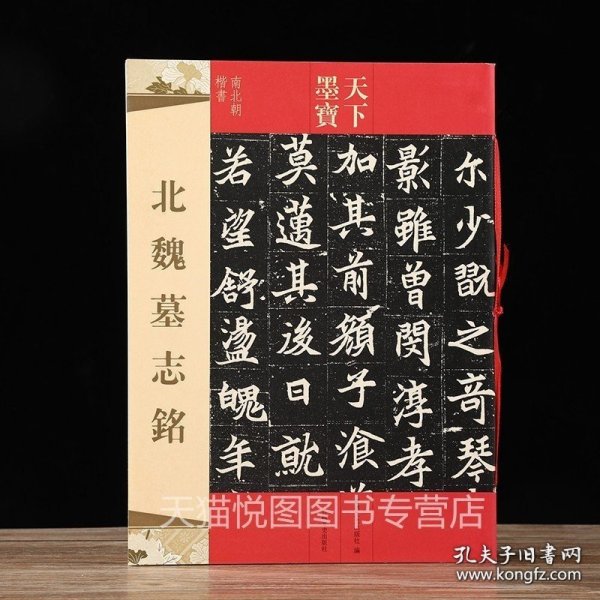 天下
墨寶
南北朝
楷書
北魏墓志銘
尓少翫之音琴
影雖曾閔淳孝
加其前顏子飡
莫邁其後日就
若望舒盪魄年
版社 編
出版社
天猫悦图图书专营店
孔夫子旧书网
www.kongfz.com